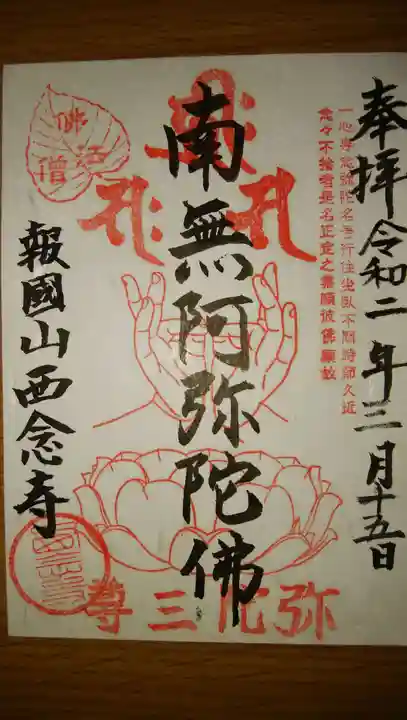 奉拝
令和二年三月十五日
一心專念弥陀名号行住坐臥不問時節久近
念々不捨者是名正定之業順彼佛願故
南無阿弥陀佛
佛法僧
弥陀三尊
報國山西念寺